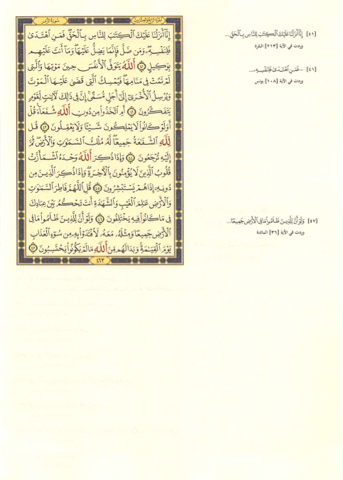 إِنَّا أَنزَلْنَا عَلَيْكَ ٱلْكِتَٰبَ لِلنَّاسِ بِٱلْحَقِّ فَمَنِ ٱهْتَدَىٰ
فَلِنَفْسِهِۦ وَمَن ضَلَّ فَإِنَّمَا يَضِلُّ عَلَيْهَا وَمَآ أَنتَ عَلَيْهِم
بِوَكِيلٍ ٤١ ٱللَّهُ يَتَوَفَّى ٱلْأَنفُسَ حِينَ مَوْتِهَا وَٱلَّتِى
لَمْ تَمُتْ فِى مَنَامِهَا فَيُمْسِكُ ٱلَّتِى قَضَىٰ عَلَيْهَا ٱلْمَوْتَ
وَيُرْسِلُ ٱلْأُخْرَىٰٓ إِلَىٰٓ أَجَلٍ مُّسَمًّى إِنَّ فِى ذَٰلِكَ لَءَايَٰتٍ لِّقَوْمٍ
يَتَفَكَّرُونَ ٤٢ أَمِ ٱتَّخَذُوا۟ مِن دُونِ ٱللَّهِ شُفَعَآءَ قُلْ
أَوَلَوْ كَانُوا۟ لَا يَمْلِكُونَ شَيْـًٔا وَلَا يَعْقِلُونَ ٤٣ قُل
لِّلَّهِ ٱلشَّفَٰعَةُ جَمِيعًا لَّهُۥ مُلْكُ ٱلسَّمَٰوَٰتِ وَٱلْأَرْضِ ثُمَّ
إِلَيْهِ تُرْجَعُونَ ٤٤ وَإِذَا ذُكِرَ ٱللَّهُ وَحْدَهُ ٱشْمَأَزَّتْ
قُلُوبُ ٱلَّذِينَ لَا يُؤْمِنُونَ بِٱلْءَاخِرَةِ وَإِذَا ذُكِرَ ٱلَّذِينَ مِن
دُونِهِۦٓ إِذَا هُمْ يَسْتَبْشِرُونَ ٤٥ قُلِ ٱللَّهُمَّ فَاطِرَ ٱلسَّمَٰوَٰتِ
وَٱلْأَرْضِ عَٰلِمَ ٱلْغَيْبِ وَٱلشَّهَٰدَةِ أَنتَ تَحْكُمُ بَيْنَ عِبَادِكَ
فِى مَا كَانُوا۟ فِيهِ يَخْتَلِفُونَ ٤٦ وَلَوْ أَنَّ لِلَّذِينَ ظَلَمُوا۟ مَا فِى
ٱلْأَرْضِ جَمِيعًا وَمِثْلَهُۥ مَعَهُۥ لَٱفْتَدَوْا۟ بِهِۦ مِن سُوٓءِ ٱلْعَذَابِ
يَوْمَ ٱلْقِيَٰمَةِ وَبَدَا لَهُم مِّنَ ٱللَّهِ مَا لَمْ يَكُونُوا۟ يَحْتَسِبُونَ ٤٧
٤٦٣
[٤١] إِنَّا أَنزَلْنَا عَلَيْكَ ٱلْكِتَٰبَ لِلنَّاسِ بِٱلْحَقِّ...
[٤١] ...فَمَنِ ٱهْتَدَىٰ فَلِنَفْسِهِۦ...
وردت في الآية [١٠٨] يونس
[٤٧] وَلَوْ أَنَّ لِلَّذِينَ ظَلَمُوا۟ مَا فِى ٱلْأَرْضِ جَمِيعًا...
وردت في الآية [٣٦] المائدة